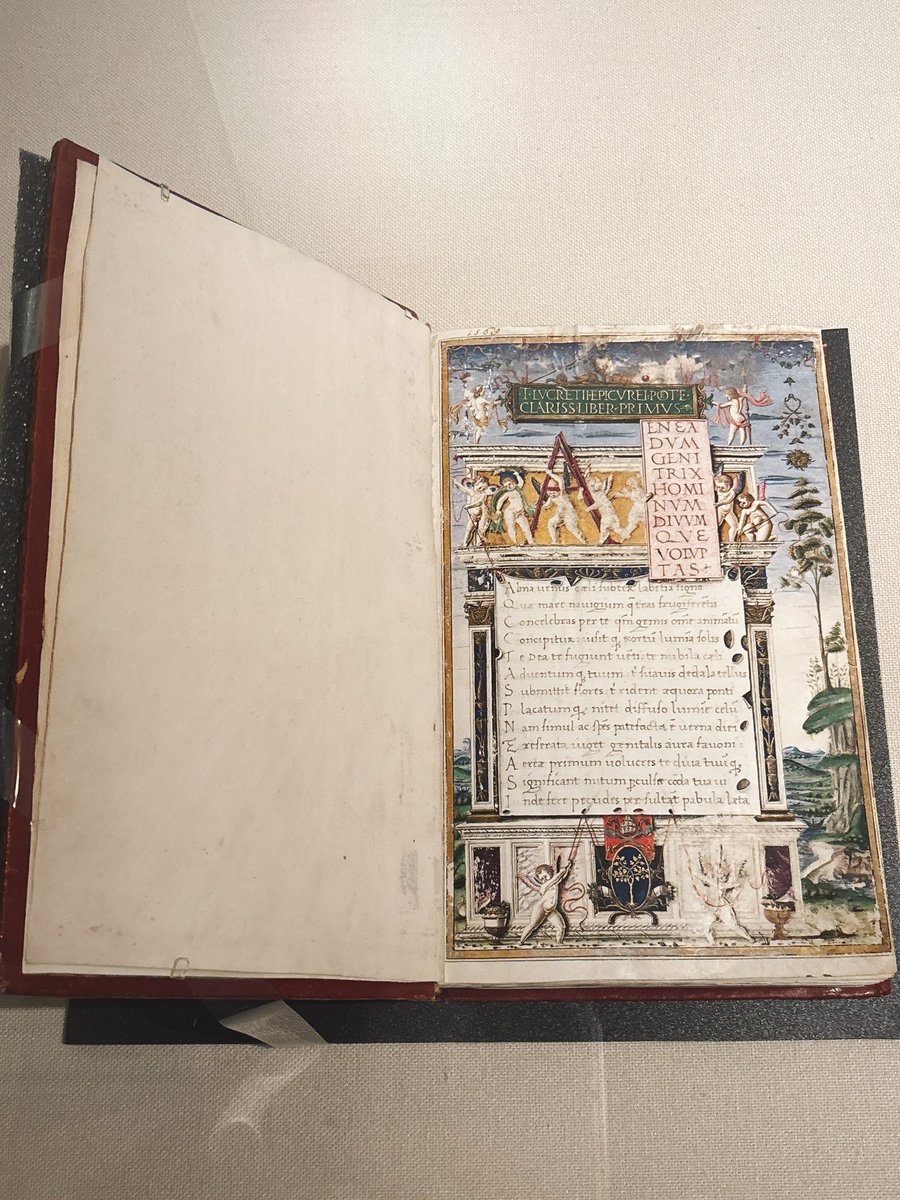 ·T·LVCRETII·EPICVREI·POTE·
CLARISS·LIBER·PRIMVS·
A
ENEA
DVM
GENI
TRIX
HOMI
NVM
DIVVM
QVE
VOLVP
TAS
Alma venus cæli subter labētia signa
Quæ mare navigium q̄ teras frugiferētis
Concelebras per te qm̄ genus om̄e animātū
Concipitur: uisit q̄ exortū lumīa solis
Te Dea te fugiunt uēti: te nubila cæli
Adventum q̄ tuum: t' suavis dædala tellus
Submittit flores: t' rident æquora ponti
Placatum q̄ nitet diffuso lumīe celū
Nam simul ac spēs patefacta ē verna diei
Et reserata uiget genitalis aura favoni:
Aereæ primum uolucres te diva tuū q̄
Significant initum pculsæ corda tua ui
Inde fere pecudes per sultāt pabula læta